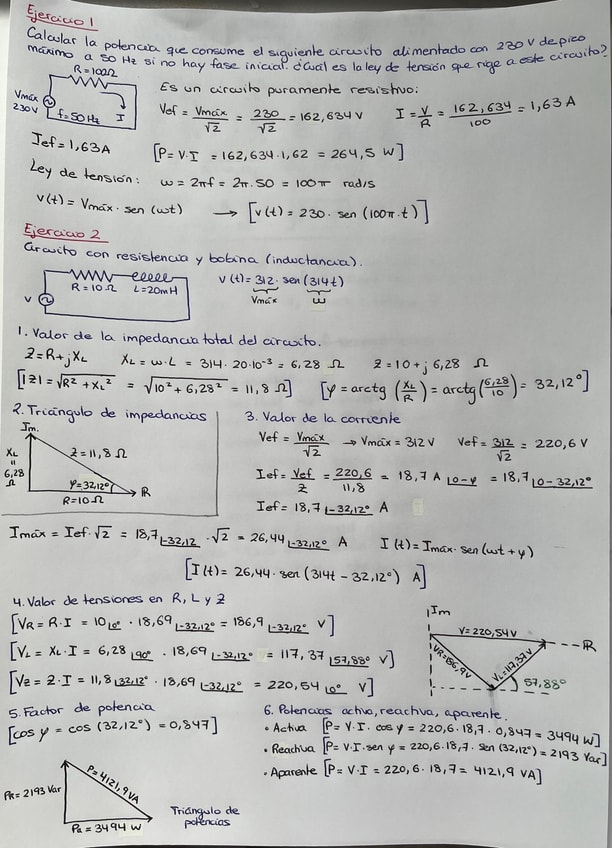 Ejercicio 1
Calcular la potencia que consume el siguiente circuito alimentado con 230 V de pico
máximo a 50 Hz si no hay fase inicial. ¿Cuál es la ley de tensión que rige a este circuito?
R=100Ω
Vmáx
230V
f=50Hz
I
Es un circuito puramente resistivo:
Vef = Vmáx/√2 = 230/√2 = 162,634 V   I = V/R = 162,634/100 = 1,63 A
Ief = 1,63A   [P=V·I = 162,634·1,62 = 264,5 W]
Ley de tensión:   ω = 2πf = 2π·50 = 100π rad/s
v(t) = Vmáx · sen (ωt)   → [v(t) = 230 · sen (100π·t)]
Ejercicio 2
Circuito con resistencia y bobina (inductancia).
R=10Ω   L=20mH
V
v(t)=312 · sen (314t)
Vmáx   ω
1. Valor de la impedancia total del circuito.
Z=R+jXL   XL = ω·L = 314 · 20·10⁻³ = 6,28 Ω   Z=10+j 6,28 Ω
[|Z| = √R²+XL² = √10²+6,28² = 11,8 Ω]   [φ=arctg (XL/R) = arctg(6,28/10) = 32,12°]
2. Triángulo de impedancias
Im.
XL
=
6,28
Ω
Z=11,8 Ω
φ=32,12°
R=10Ω
R
3. Valor de la corriente
Vef = Vmáx/√2 → Vmáx = 312 V   Vef = 312/√2 = 220,6 V
Ief = Vef/Z = 220,6/11,8 = 18,7 A |0-φ = 18,7 |0-32,12°
Ief = 18,7 |-32,12° A
Imáx = Ief·√2 = 18,7 |-32,12 · √2 = 26,44 |-32,12° A   I(t)=Imáx·sen(ωt+φ)
[I(t) = 26,44 · sen (314t - 32,12°) A]
4. Valor de tensiones en R, L y Z
[VR = R·I = 10 |0° · 18,69 |-32,12° = 186,9 |-32,12° V]
[VL = XL·I = 6,28 |90° · 18,69 |-32,12° = 117,37 |57,88° V]
[VZ = Z·I = 11,8 |32,12° · 18,69 |-32,12° = 220,54 |0° V]
Im
V=220,54V
R
VR=186,9V
VL=117,37V
57,88°
5. Factor de potencia
[cos φ = cos (32,12°) = 0,847]
6. Potencias activa, reactiva, aparente.
• Activa [P=V·I·cos φ = 220,6·18,7·0,847 = 3494 W]
• Reactiva [P=V·I·sen φ = 220,6·18,7·sen (32,12°) = 2193 Var]
• Aparente [P=V·I = 220,6·18,7 = 4121,9 VA]
PR=2193 Var
P=4121,9VA
Pa=3494 W
Triángulo de
potencias